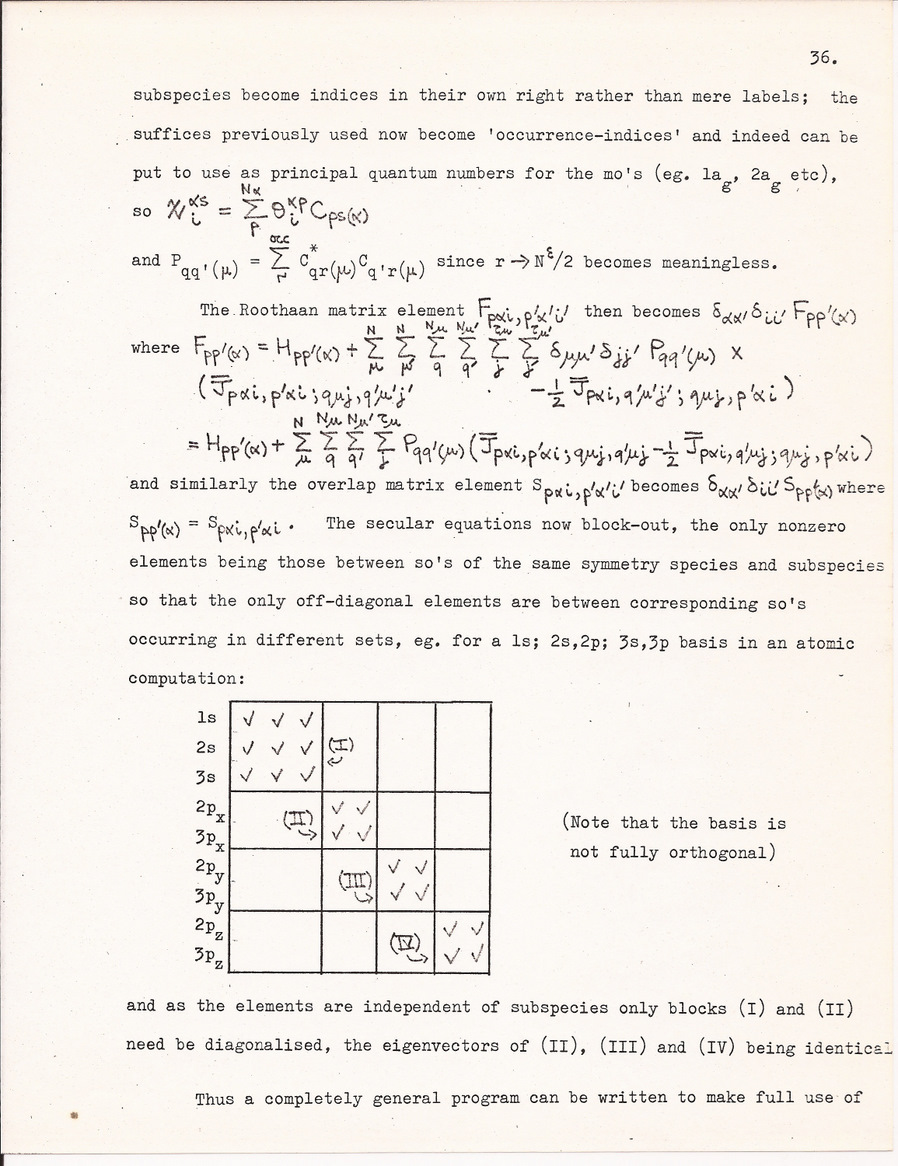 36.
subspecies become indices in their own right rather than mere labels; the
suffices previously used now become 'occurrence-indices' and indeed can be
put to use as principal quantum numbers for the mo's (eg. 1a_g, 2a_g etc),
so χ_i^{αs} = Σ_p^{Nα} θ_i^{αp} C_{ps(α)}
and P_{qq'(μ)} = Σ_r^{occ} C*_{qr(μ)} C_{q'r(μ)} since r → N^ε/2 becomes meaningless.
The Roothaan matrix element F_{pαi,p'α'i'} then becomes δ_{αα'} δ_{ii'} F_{pp'(α)}
where F_{pp'(α)} = H_{pp'(α)} + Σ_μ^N Σ_{μ'}^N Σ_q^{Nμ} Σ_{q'}^{Nμ'} Σ_j^{τμ} Σ_{j'}^{τμ'} δ_{μμ'} δ_{jj'} P_{qq'(μ)} ×
(J̄_{pαi,p'αi;qμj,q'μ'j'} - ½ J̄_{pαi,q'μ'j';qμj,p'αi})
= H_{pp'(α)} + Σ_μ^N Σ_q^{Nμ} Σ_{q'}^{Nμ'} Σ_j^{τμ} P_{qq'(μ)} (J̄_{pαi,p'αi;qμj,q'μj} - ½ J̄_{pαi,q'μj;qμj,p'αi})
and similarly the overlap matrix element S_{pαi,p'α'i'} becomes δ_{αα'} δ_{ii'} S_{pp'(α)} where
S_{pp'(α)} = S_{pαi,p'αi}. The secular equations now block-out, the only nonzero
elements being those between so's of the same symmetry species and subspecies
so that the only off-diagonal elements are between corresponding so's
occurring in different sets, eg. for a 1s; 2s,2p; 3s,3p basis in an atomic
computation:
1s ✓ ✓ ✓
2s ✓ ✓ ✓ (I)
3s ✓ ✓ ✓
2p_x (II) ✓ ✓
3p_x ✓ ✓
(Note that the basis is
not fully orthogonal)
2p_y (III) ✓ ✓
3p_y ✓ ✓
2p_z (IV) ✓ ✓
3p_z ✓ ✓
and as the elements are independent of subspecies only blocks (I) and (II)
need be diagonalised, the eigenvectors of (II), (III) and (IV) being identical
Thus a completely general program can be written to make full use of